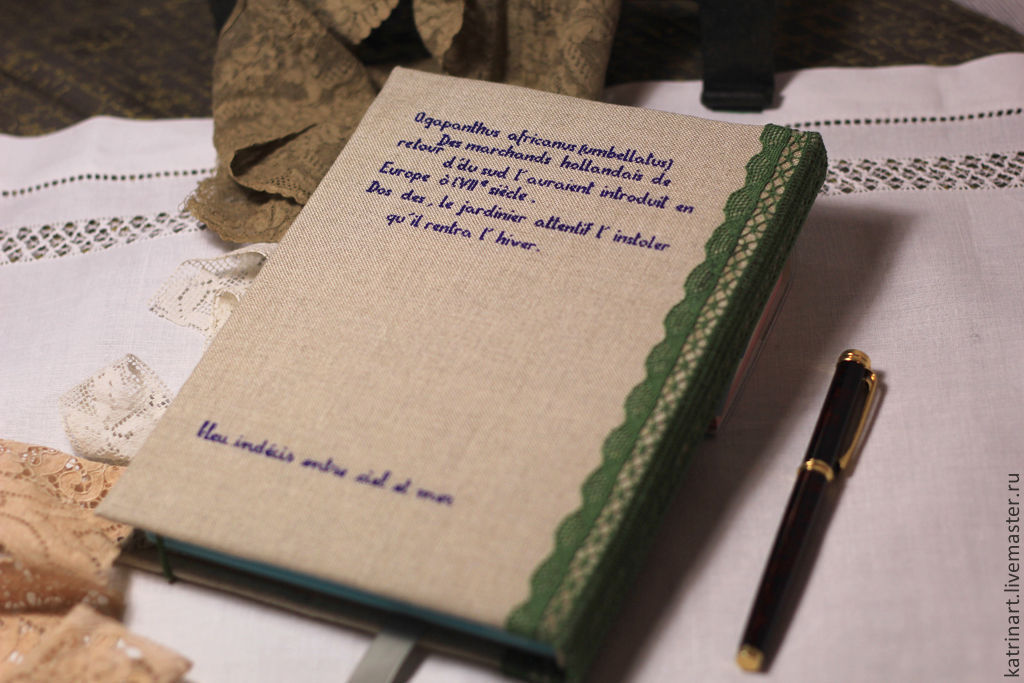 Agapanthus africanus (umbellatus)
Des marchands hollandais de
retour d'du sud l'auraient introduit en
Europe ò (VIIe siècle.
Dos des, le jardinier attentif l'instoler
qu'il rentra l'hiver.
Heu indécis entre siel et mer
katrinart.livemaster.ru